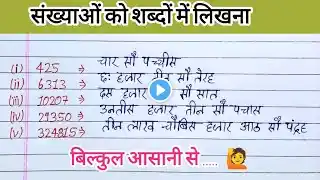 संख्याओं को शब्दों में लिखना
(i) 425 ⇒ चार सौ पच्चीस
(ii) 6313 ⇒ छः हजार तीन सौ तेरह
(iii) 10207 ⇒ दस हजार सौ सात
(iv) 29350 ⇒ उनतीस हजार तीन सौ पचास
(v) 324815 ⇒ तीन लाख चौबिस हजार आठ सौ पंद्रह
बिल्कुल आसानी से .....